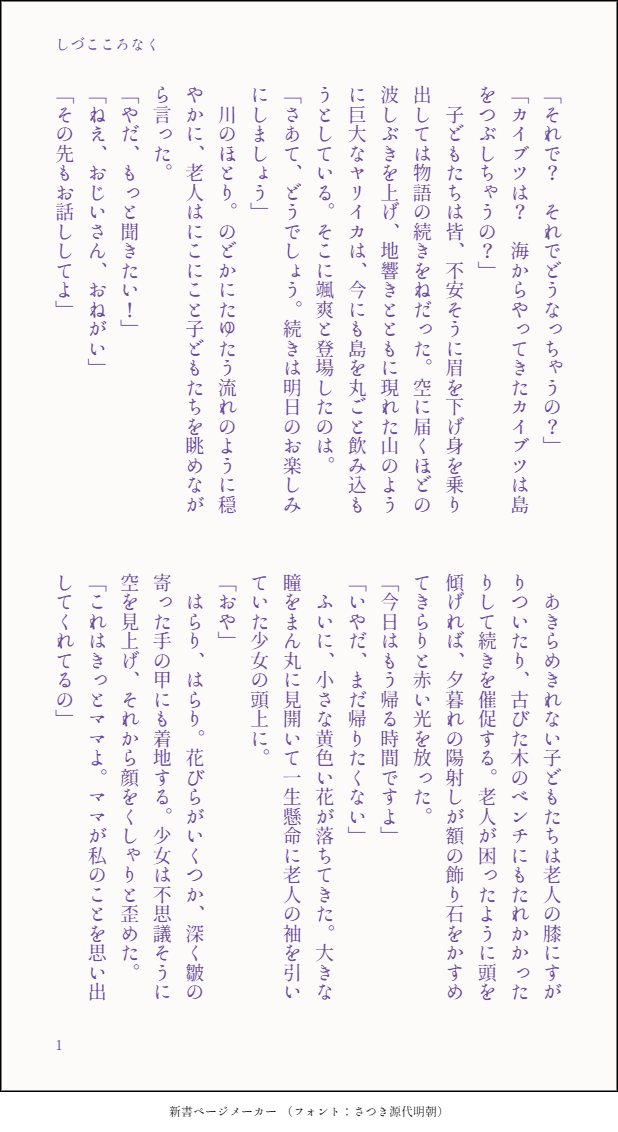 しづこころなく
「それで？　それでどうなっちゃうの？」
「カイブツは？　海からやってきたカイブツは島
をつぶしちゃうの？」
　子どもたちは皆、不安そうに眉を下げ身を乗り
出しては物語の続きをねだった。空に届くほどの
波しぶきを上げ、地響きとともに現れた山のよう
に巨大なヤリイカは、今にも島を丸ごと飲み込も
うとしている。そこに颯爽と登場したのは。
「さあて、どうでしょう。続きは明日のお楽しみ
にしましょう」
　川のほとり。のどかにたゆたう流れのように穏
やかに、老人はにこにこと子どもたちを眺めなが
ら言った。
「やだ、もっと聞きたい！」
「ねえ、おじいさん、おねがい」
「その先もお話ししてよ」
　あきらめきれない子どもたちは老人の膝にすが
りついたり、古びた木のベンチにもたれかかった
りして続きを催促する。老人が困ったように頭を
傾げれば、夕暮れの陽射しが額の飾り石をかすめ
てきらりと赤い光を放った。
「今日はもう帰る時間ですよ」
「いやだ、まだ帰りたくない」
　ふいに、小さな黄色い花が落ちてきた。大きな
瞳をまん丸に見開いて一生懸命に老人の袖を引い
ていた少女の頭上に。
「おや」
　はらり、はらり。花びらがいくつか、深く皺の
寄った手の甲にも着地する。少女は不思議そうに
空を見上げ、それから顔をくしゃりと歪めた。
「これはきっとママよ。ママが私のことを思い出
してくれてるの」
1
新書ページメーカー （フォント：さつき源代明朝）